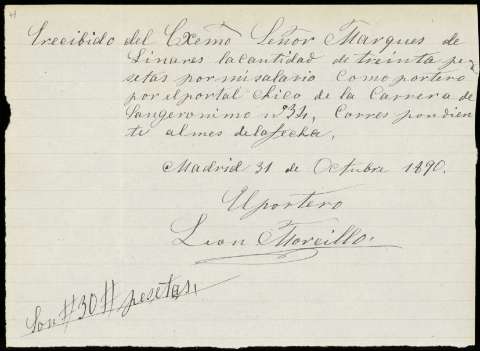 Irecibido del Exemo Señor Marques de
Linares la cantidad de treinta pe-
setas por mi salario como portero
por el portal chico de la Carrera de
Sangeronimo nº 34, Corres pondien
te al mes de la fecha.
Madrid 31 de Octubre 1890.
El portero
Leon Morcillo.
Son #30# pesetas,